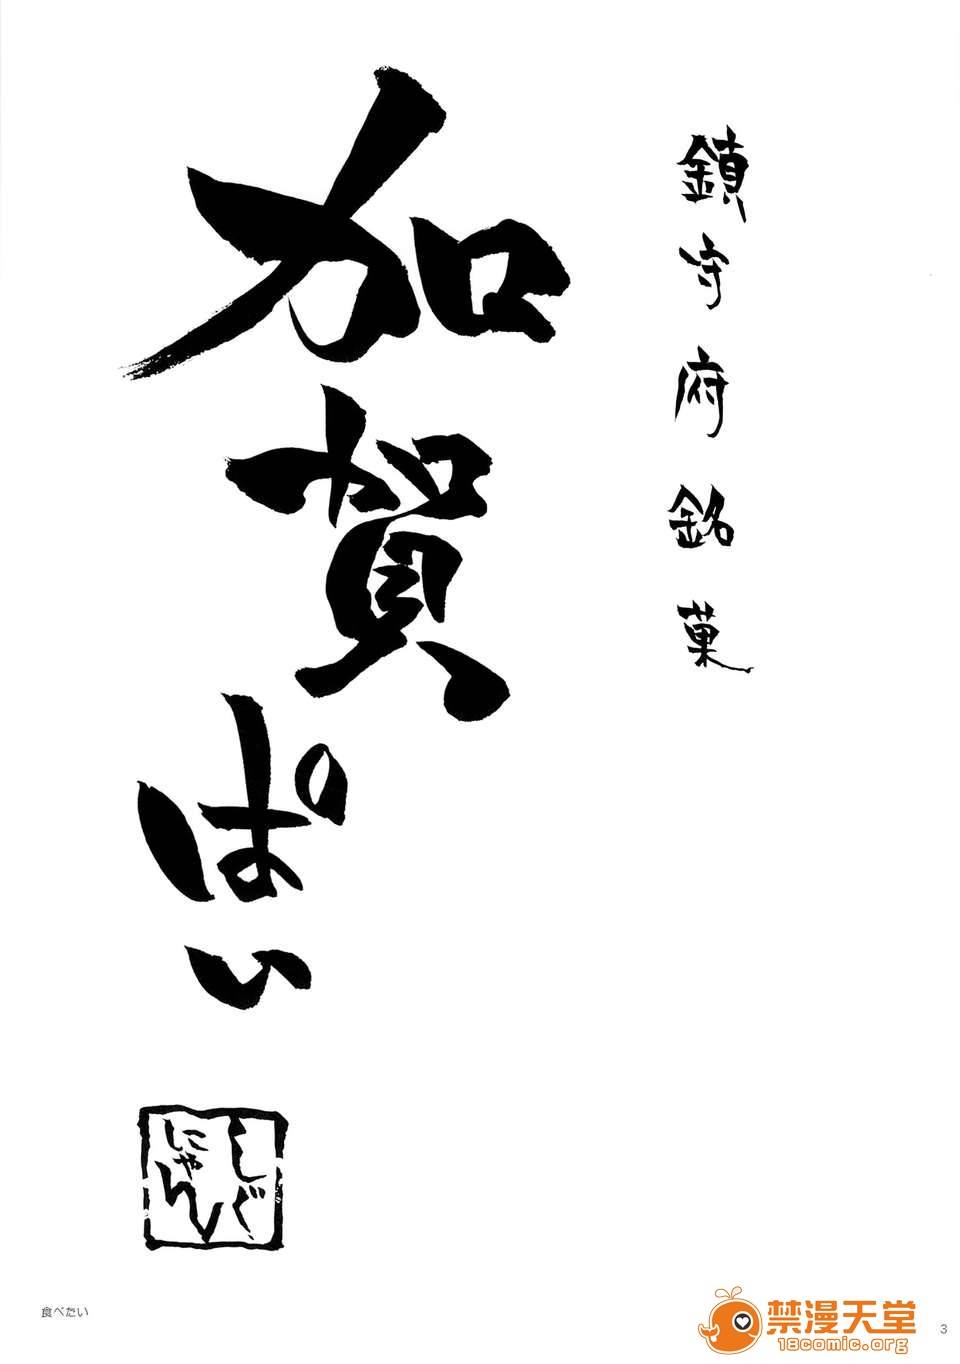 鎮守府銘菓
加賀ぱい
しぐ
にゃん
食べたい
禁漫天堂
18comic.org
3